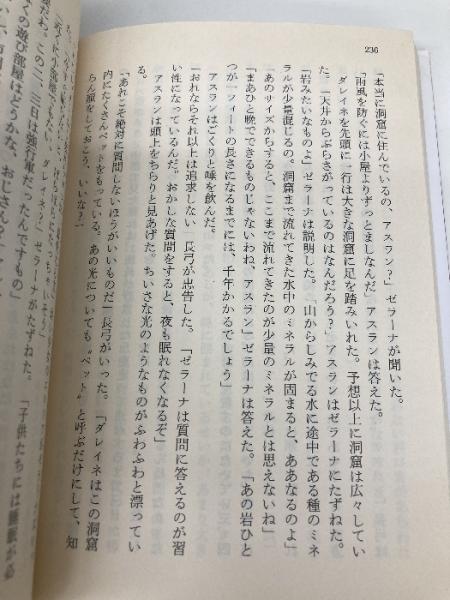 236
「本当に洞窟に住んでいるの、アスラン？」ゼラーナが聞いた。
「雨風を防ぐには小屋よりずっとましなんだ」アスランは答えた。
ダレイネを先頭に一行は大きな洞窟に足を踏みいれた。予想以上に洞窟は広々してい
た。「天井からぶらさがっているのはなんだろう？」アスランはゼラーナにたずねた。
「岩みたいなものよ」ゼラーナは説明した。「山からしみでる水に途中である種のミネ
ラルが少量混じるの。洞窟まで流れてきた水中のミネラルが固まると、ああなるのよ」
「あのサイズからすると、ここまで流れてきたのが少量のミネラルとは思えないね」
「まあひと晩でできるものじゃないわね、アスラン」ゼラーナは答えた。「あの岩ひと
つが一フィートの長さになるまでには、千年かかるでしょう」
アスランはごくりと唾を飲んだ。
「おれならそれ以上は追求しない」長弓が忠告した。「ゼラーナは質問に答えるのが習
い性になっているんだ。おかしな質問をすると、夜も眠れなくなるぞ」
アスランは頭上をちらりと見あげた。ちいさな光のようなものがふわふわと漂ってい
る。
「あれこそ絶対に質問しないほうがいいものだ」長弓がいった。「ダレイネはこの洞窟
内にたくさんペットをもっている。あの光についても〝ペット〟と呼ぶだけにして、知
らん顔をしておこう。いいな？」
ダレイネ？」ゼラーナがたずねた。「子供たちには睡眠が必
この二、三日は強行軍だ
んですもの」
くの遊び部屋はどうかな、おじさん